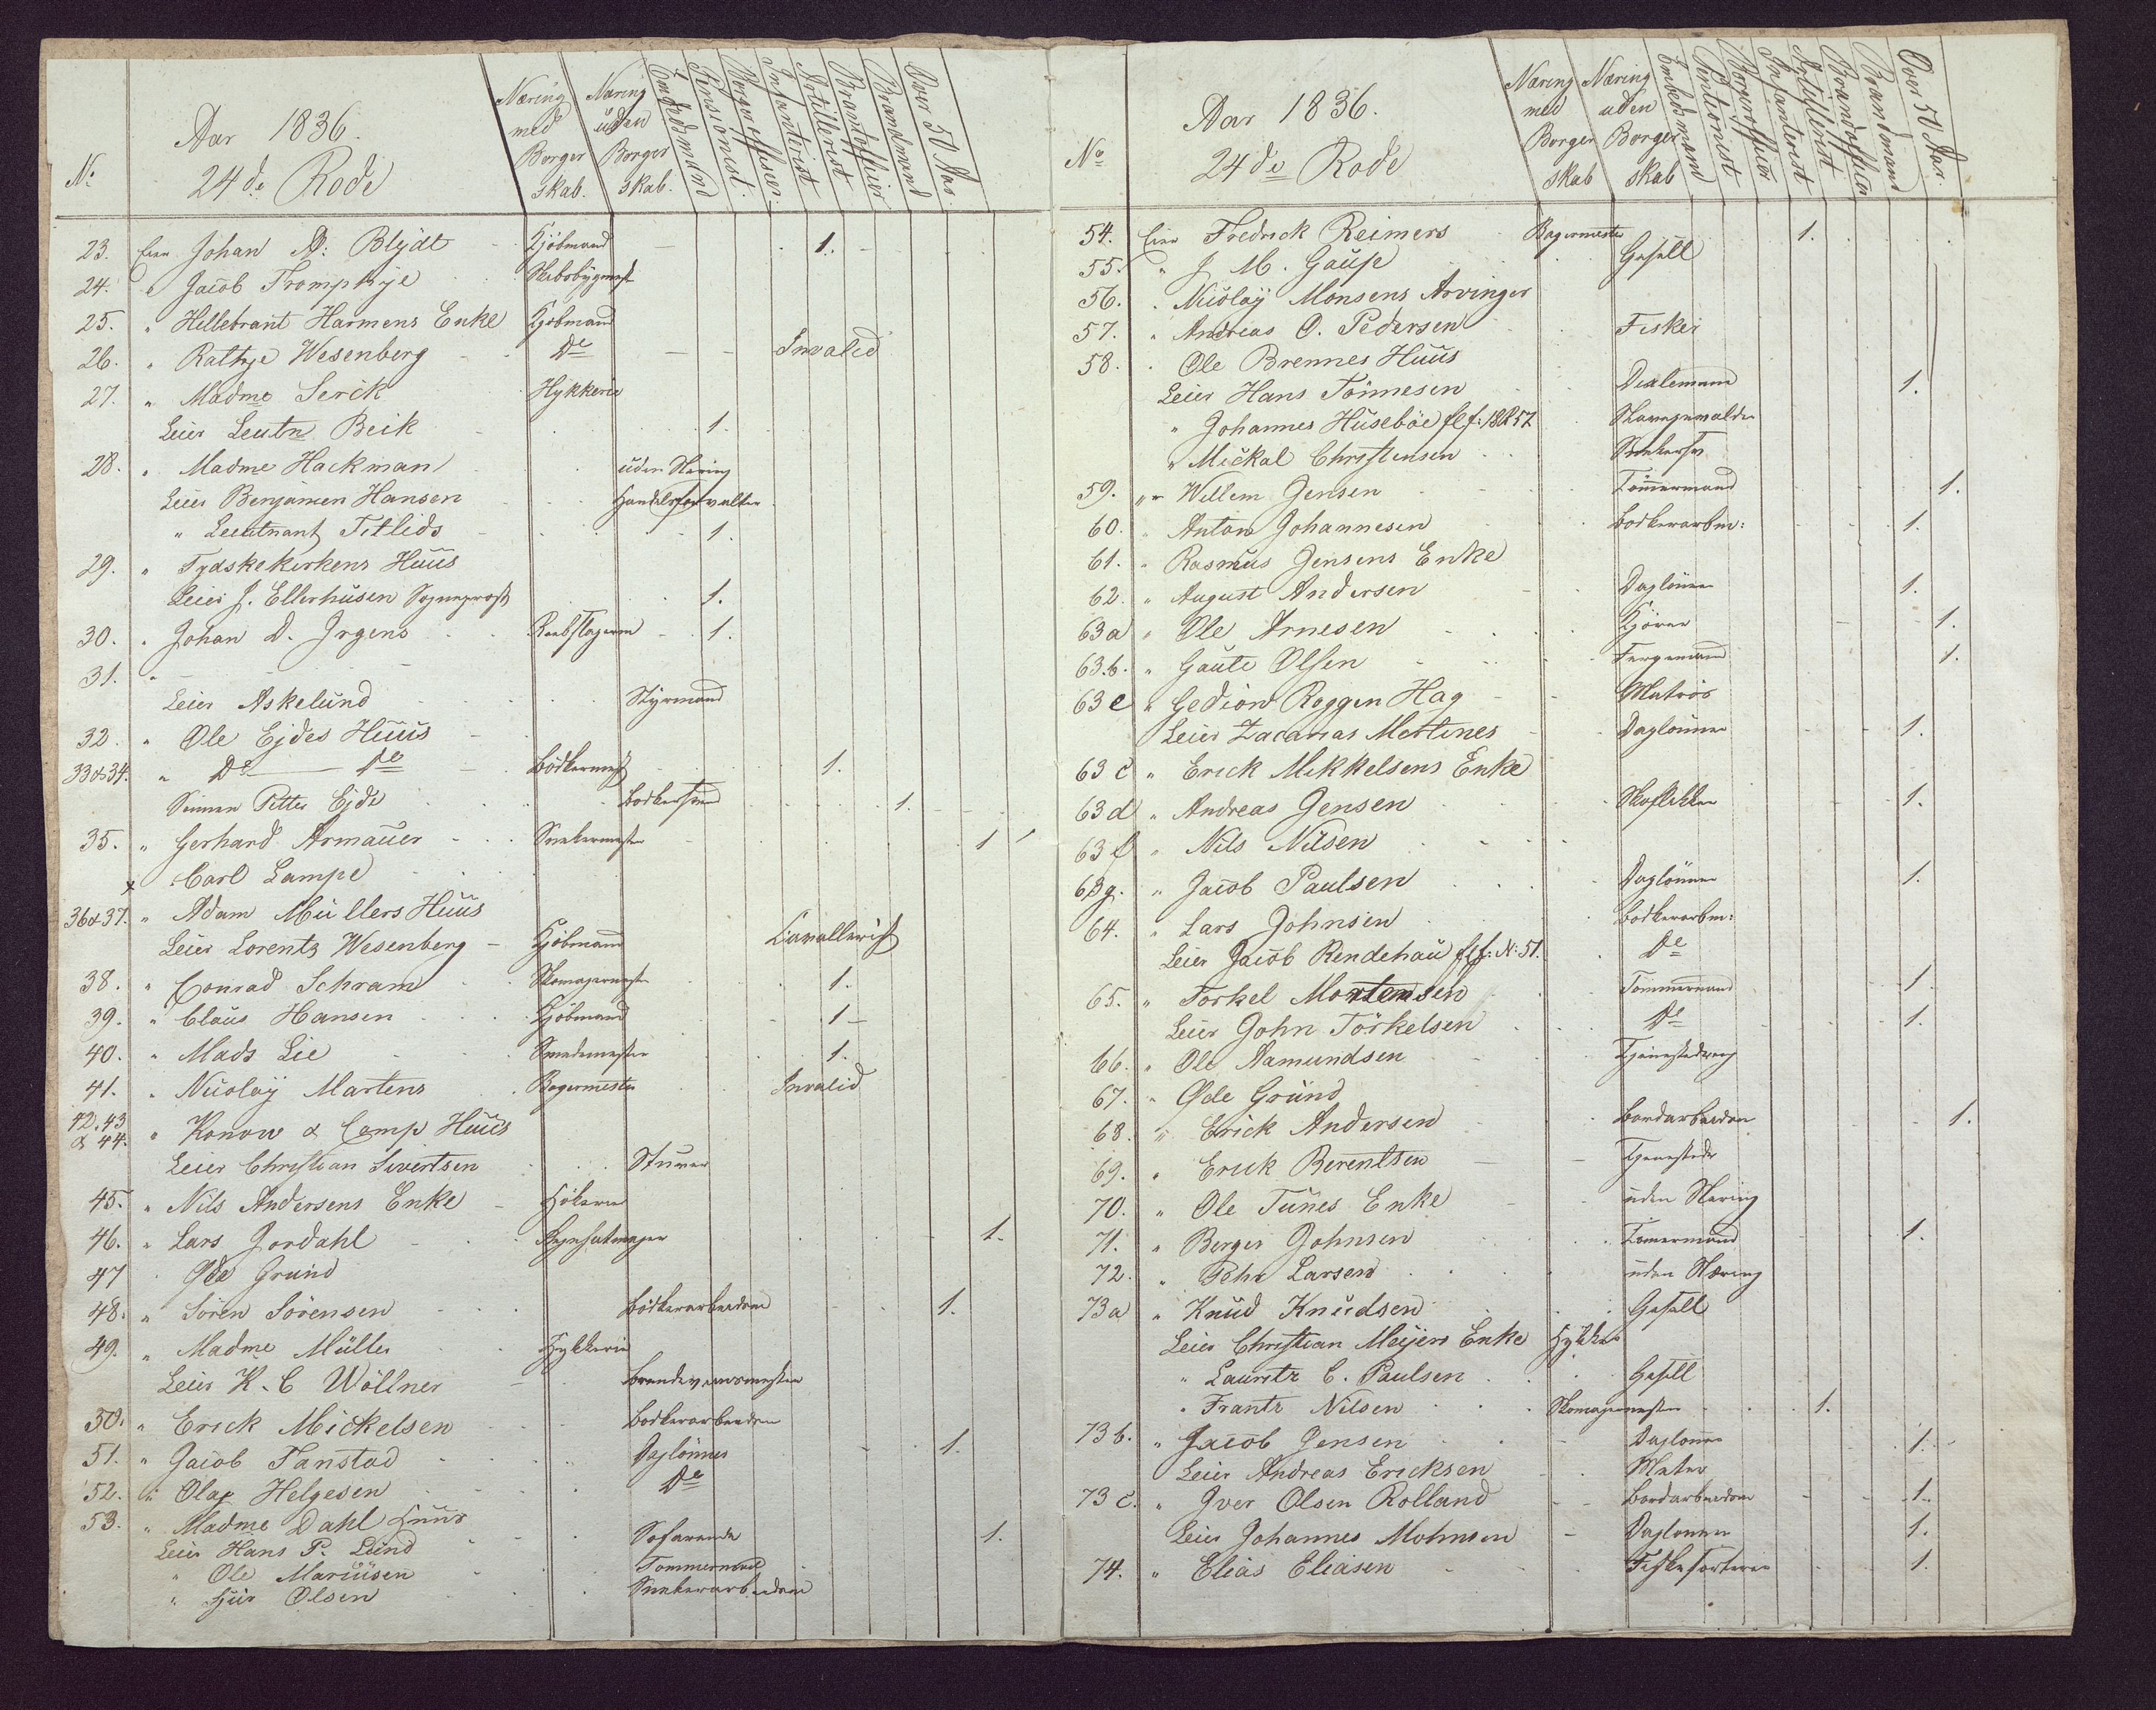 No Aar 1836. 24de Rode Næring med Borger skab. Næring uden Borger skab. Embedsmand Pinssionist. Borgerofficier Infanterist Artillerist Brandofficier Brandmand Over 50 Aar.
23. Eier Johan A: Blÿdt Kjöbmand 1.
24. " Jacob Trompkye Skibsbÿgmest
25. " Hillebrant Harmens Enke Kjöbmand
26. " Rathje Wesenberg De Invalid
27. " Madme Serck Hÿkkerie
Leier Leutn Beik 1.
28. " Madme Hackman uden Næring
Leier Benjamen Hansen Handelsforvalter
" Leeutnant Titlids 1.
29. " Tydskekirkens Huus
Leier J. Ellerhusen Sogneprest 1.
30. " Johan D. Irgens Reebslagerm 1.
31. "
Leier Askelund Stÿrmand
32. " Ole Ejdes Huus
33&34. " De De Bödkermest 1.
Sönnen Petter Ejde Bodkersvend 1.
35. " Gerhard Armauer Snekermester 1
x Carl Lampe
36&37. " Adam Müllers Huus
Leier Lorentz Wesenberg Kjöbmand Cavallerist
38. " Conrad Schram Skomagermester 1.
39. " Claus Hansen Kjöbmand 1
40. " Mads Lie Smedemester 1.
41. " Nicolaÿ Martens Bagermester Invalid
42.43 & 44. " Konow & Comp Huus
Leier Christian Sivertsen Stuver
45. " Nils Andersens Enke Hökerie
46. " Lars Jordahl 1.
47 Øde Grund
48. " Sören Sörensen Bödkerarbeider 1.
49. " Madme Müller Hykkerie
Leier K. C Wöllner
50. " Erick Mickelsen Bodkerarbeider
51. " Jacob Tanstad Daglönner 1.
52. " Olaf Helgesen De
53. " Madme Dahl Huus
Leier Hans P. Lund Sofarende 1.
" Ole Mariusen Tommermand
" Olsen Snekerarbeider
No Aar 1836. 24de Rode Næring med Borger skab Næring uden Borger skab Embedsmand Pentionist Borgerofficier Infanterist Artillerist Brandofficier Brandmand Over 50 Aar.
54. Eier Fredrick Reimers Bagermester 1.
55. " J M. Gaup Gesell
56. " Nicolaÿ Monsens Arvinger
57. " Andreas O. Pedersen Fisker
58. " Ole Brennes Huus
Leier Hans Tönnesen 1.
" Johannes Husebøe
" Mickal Christensen
59. " Willem Jensen Tömmermand 1.
60. " Anton Johannesen Bodkerarbei: 1.
61. " Rasmus Jensens Enke
62. " August Andersen Daglönner 1.
63a " Ole Arnesen Kjörer 1.
63.b. " Gaute Olsen Fergemand 1.
63c " Gedion Roggen Hag Matros
Leier Zacarias Mertines Daglönner 1.
63c " Erick Mikkelsens Enke
63d " Andreas Jensen Skoflikker 1.
63f " Nils Nilsen
63g. " Jacob Paulsen Daglönner 1.
64. " Lars Johnsen Bodkerarbei:
Leier Jacob Rindehau flf: N: 51. De
65. " Torkel Mortensen Tommermand 1
Leier John Torkelsen De 1.
66. " Ole Aamundsen
67. " Øde Grund
68. " Erick Andersen Bordarbeider 1.
69. " Erick Berentsen
70. " Ole Tunes Enke uden Næring
71. " Berger Johnsen Tömermand 1.
72. " Pehr Larsen uden Næring
73a " Knud Knudsen Gesell
Leier Christian Meijers Enke Hykker
" Lauritz C. Paulsen Gesell
" Frantz Nilsen Skomagermester 1.
73b. " Jacob Jensen Daglönner 1.
Leier Andreas Ericksen
73c. " Iver Olsen Rolland Bordarbeider 1.
Leier Johannes Mohnsen Daglonner 1.
74. " Elias Eliasen 1.